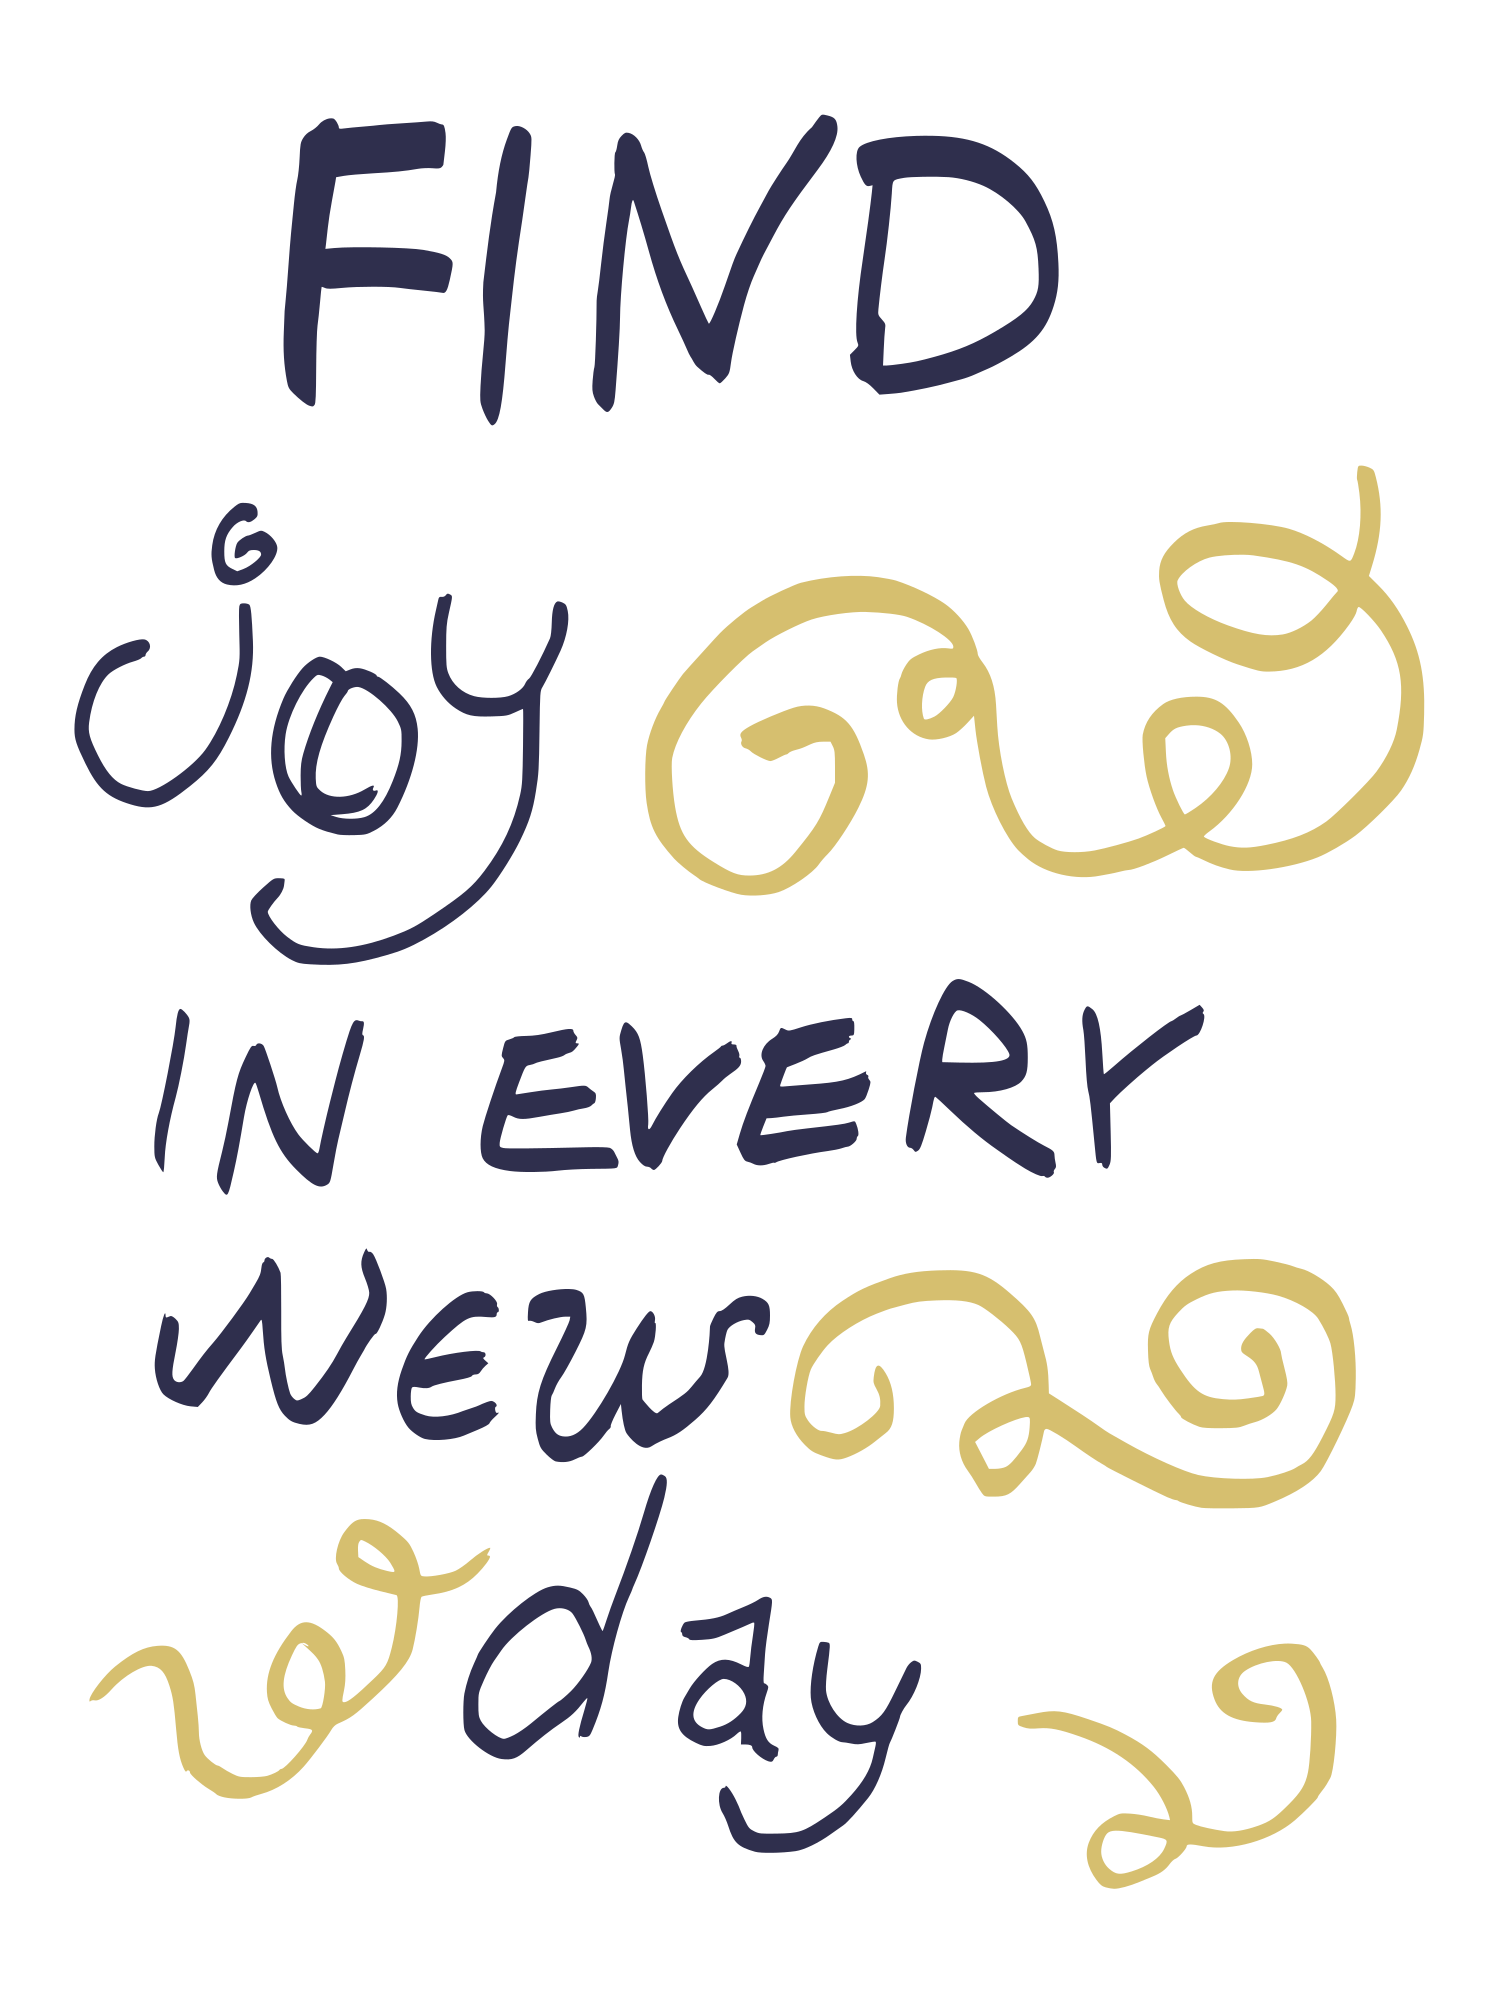 FIND
joy
IN EVERY
NEW
day